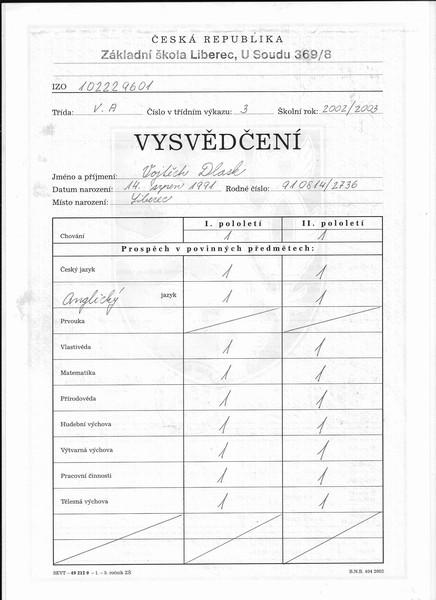 ČESKÁ REPUBLIKA
Základní škola Liberec, U Soudu 369/8
IZO 102229601
Třída: V. A Číslo v třídním výkazu: 3 Školní rok: 2002/2003
VYSVĚDČENÍ
Jméno a příjmení: Vojtěch Dlask
Datum narození: 14. srpen 1991 Rodné číslo: 910814/2736
Místo narození: Liberec
I. pololetí II. pololetí
Chování 1 1
Prospěch v povinných předmětech:
Český jazyk 1 1
Anglický jazyk 1 1
Prvouka
Vlastivěda 1 1
Matematika 1 1
Přírodověda 1 1
Hudební výchova 1 1
Výtvarná výchova 1 1
Pracovní činnosti 1 1
Tělesná výchova 1 1
SEVT - 49 212 0 - 1. - 5. ročník ZŠ B.N.B. 404 2002